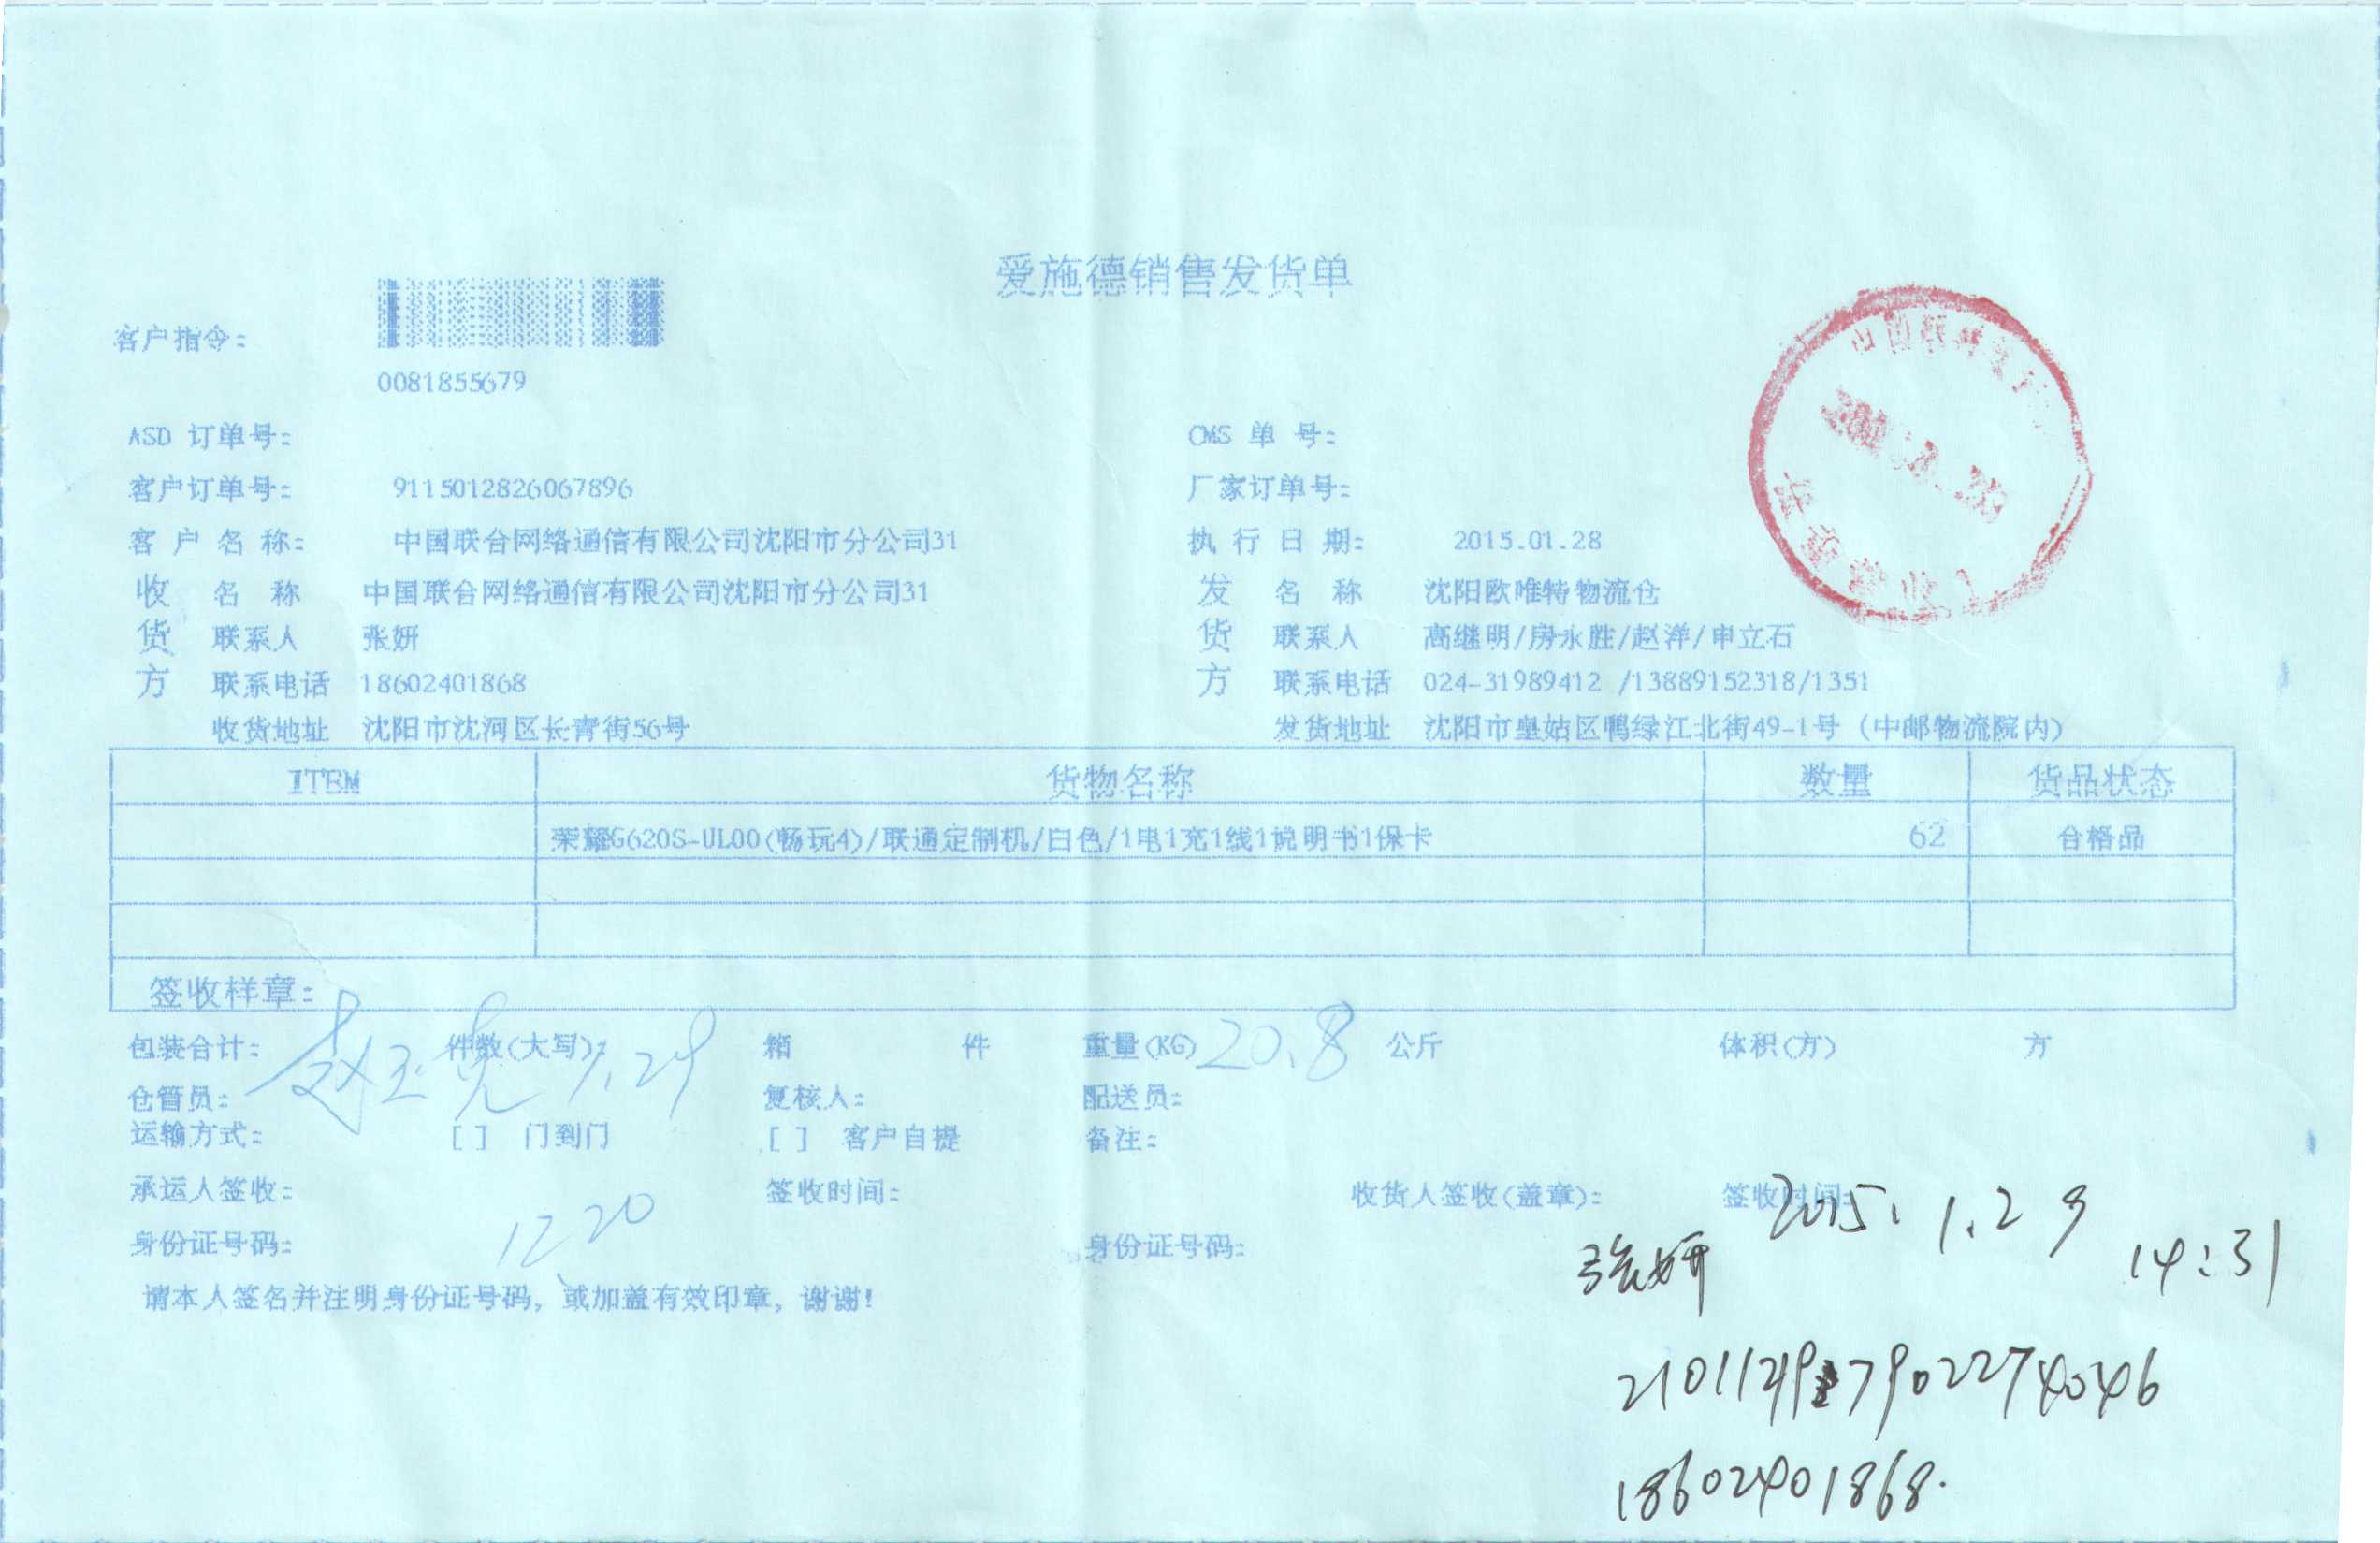 爱施德销售发货单
客户指令:
0081855679
ASD 订单号: CMS 单 号:
客户订单号: 9115012826067896 厂家订单号:
客 户 名 称: 中国联合网络通信有限公司沈阳市分公司31 执 行 日 期: 2015.01.28
收 名 称 中国联合网络通信有限公司沈阳市分公司31 发 名 称 沈阳欧唯特物流仓
货 联系人 张妍 货 联系人 高继明/房永胜/赵洋/申立石
方 联系电话 18602401868 方 联系电话 024-31989412 /13889152318/1351
收货地址 沈阳市沈河区长青街56号 发货地址 沈阳市皇姑区鸭绿江北街49-1号 (中邮物流院内)
ITEM 货物名称 数量 货品状态
荣耀G620S-UL00(畅玩4)/联通定制机/白色/1电1充1线1说明书1保卡 62 合格品
签收样章:
包装合计: 件数(大写): 箱 件 重量(KG) 20.8 公斤 体积(方) 方
1.29
仓管员: 复核人: 配送员:
运输方式: [ ] 门到门 [ ] 客户自提 备注:
承运人签收: 签收时间: 收货人签收(盖章): 签收时间:
2015.1.29
张妍 14:31
身份证号码: 1220 身份证号码:
请本人签名并注明身份证号码, 或加盖有效印章, 谢谢!
18602401868.